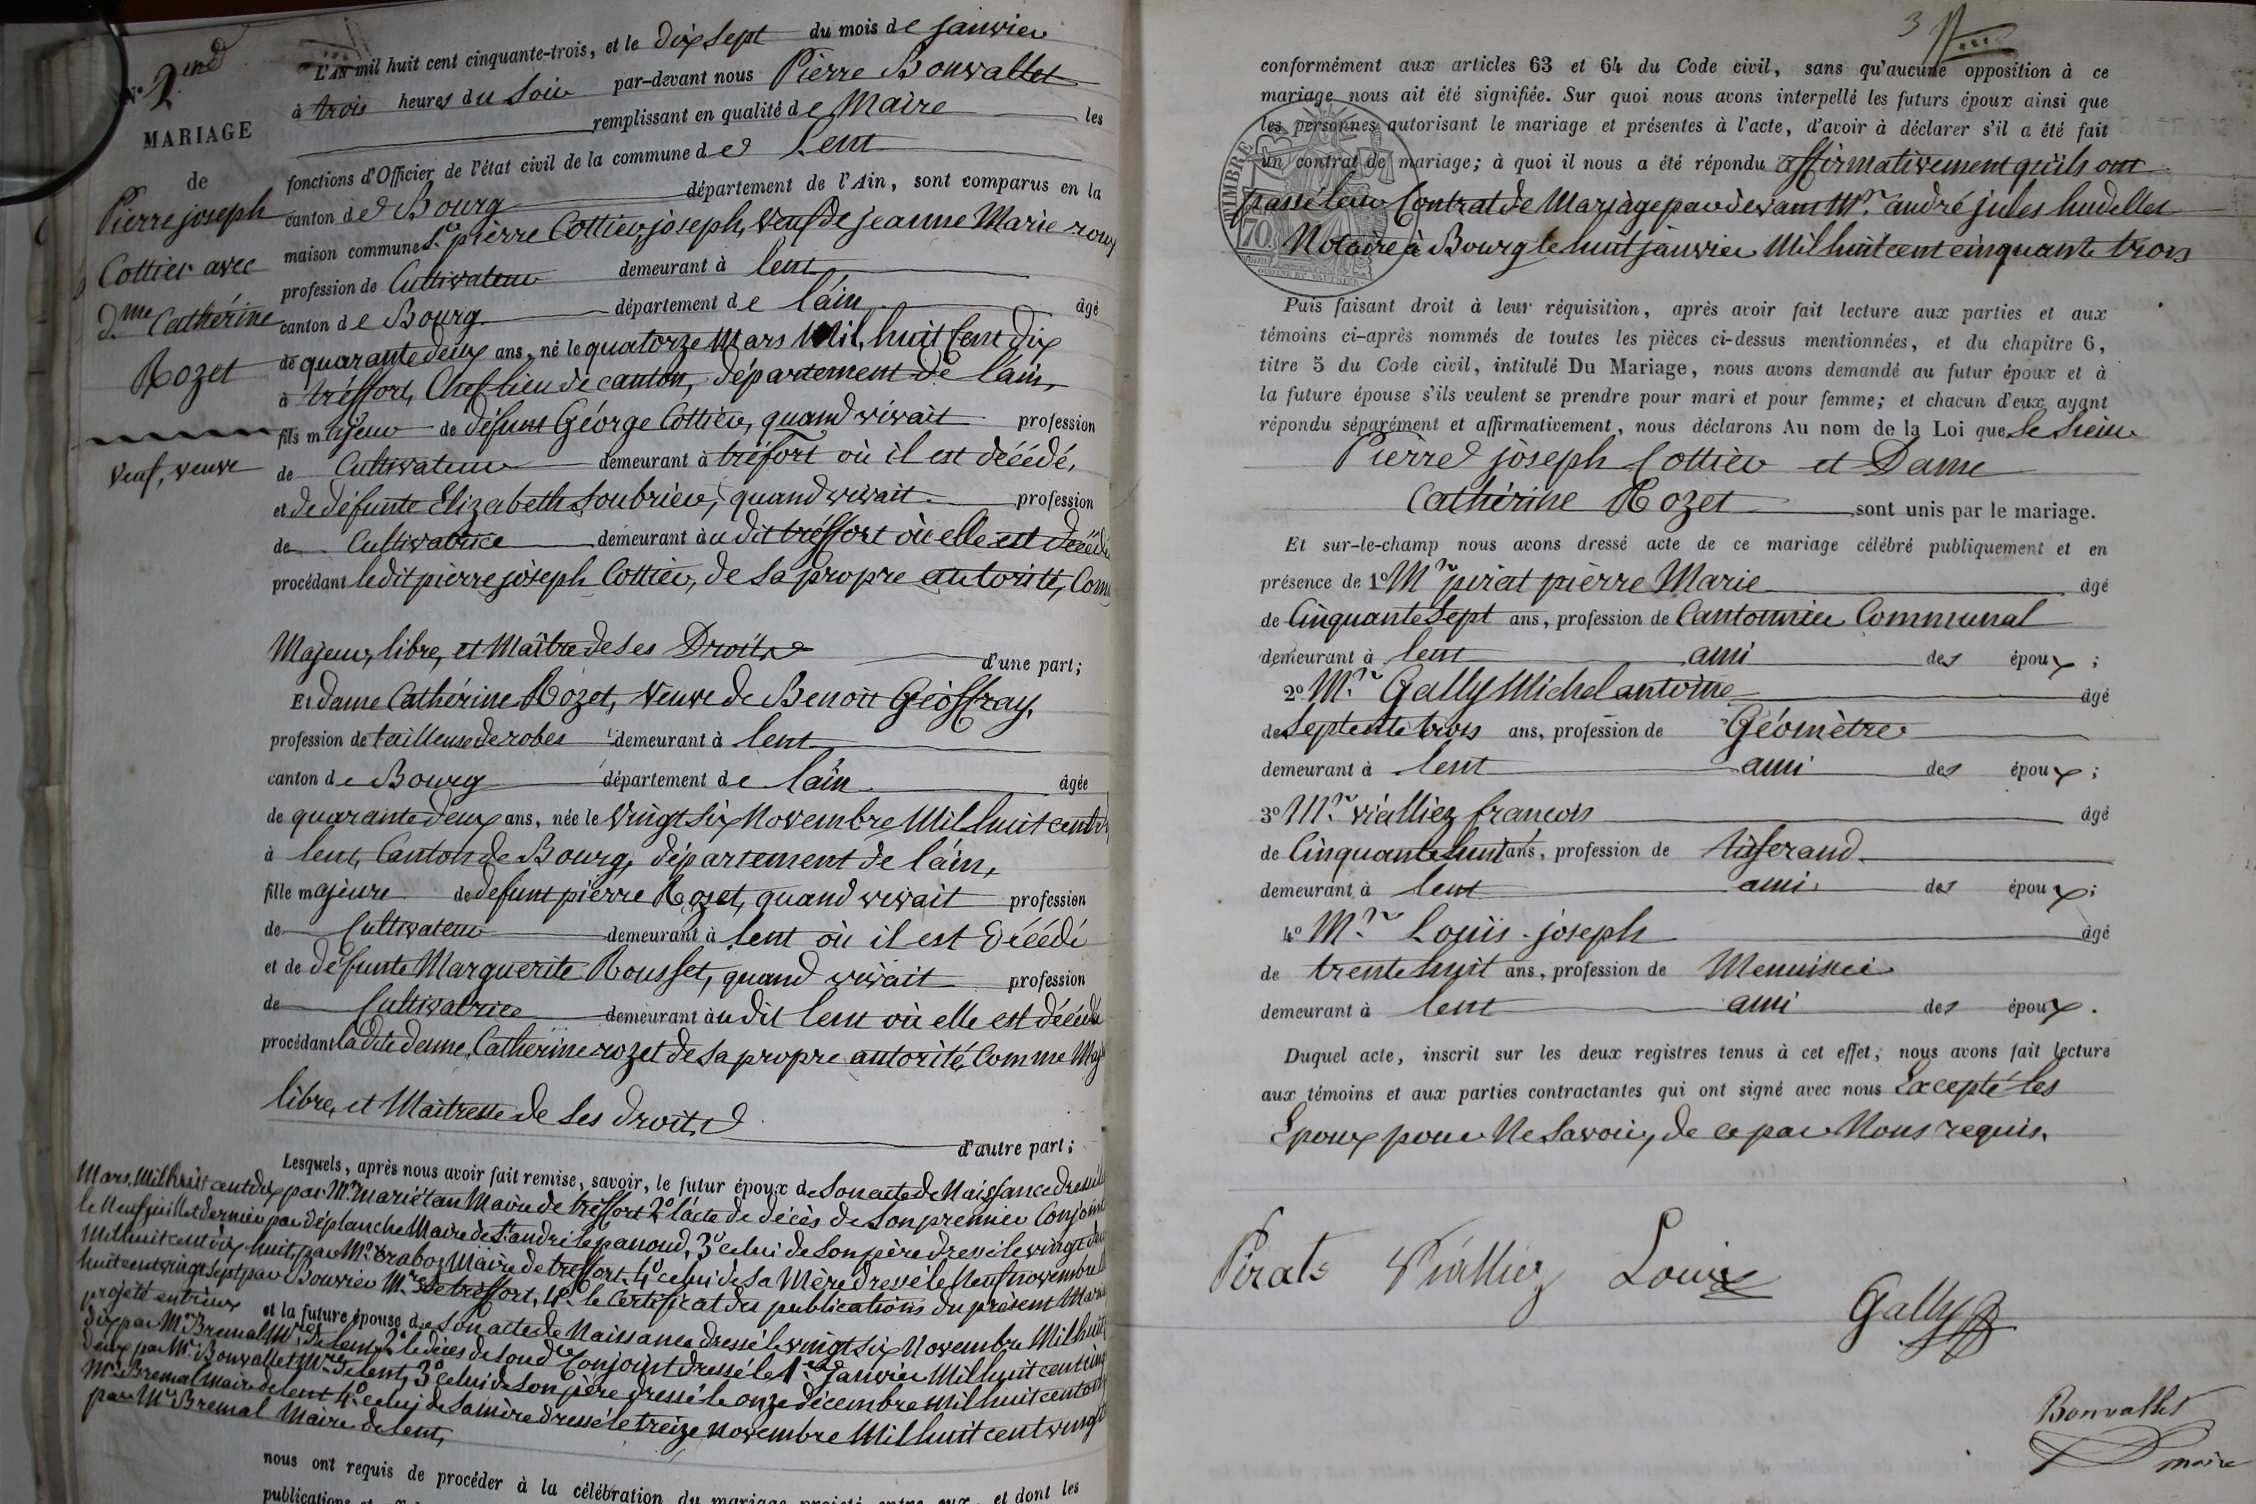 N° 2.ind
MARIAGE
de
Pierre joseph
Cottier avec
d.me Cathérine
Rozet
Veuf, veuve
L'AN mil huit cent cinquante-trois, et le dix sept du mois de janvier
à trois heures du Soir par-devant nous Pierre Bonvallet
remplissant en qualité de Maire les
fonctions d'Officier de l'état civil de la commune de Lent
canton de Bourg département de l'Ain, sont comparus en la
maison commune S.r pierre Cottier, joseph, veuf de jeanne Marie roux
profession de Cultivateur demeurant à lent
canton de Bourg département de l'áin âgé
de quarante deux ans, né le quatorze Mars Mil, huit Cent dix
à tréffort, Chef lieu de canton, département de l'áin,
fils majeur de défunt Géorge Cottier, quand vivait profession
de Cultivateur demeurant à tréfort où il est décédé,
et de défunte Elizabeth Soubrier, quand vivait profession
de Cultivatrice demeurant àu dit tréffort où elle est décédé
procédant le dit pierre joseph Cottier, de sa propre autorité, Com
Majeur, libre, et Maître de ses Droits d'une part;
Et dame Cathérine Rozet, Veuve de Benoit Géoffray,
profession de tailleuse de robes demeurant à lent
canton de Bourg département de l'áin âgée
de quarante deux ans, née le vingt six Novembre Mil huit cent
à lent, Canton de Bourg, département de l'áin,
fille majeure de defunt pierre Rozet, quand vivait profession
de Cultivateur demeurant à lent où il est décédé
et de défunte Marguerite Rousset, quand vivait profession
de Cultivatrice demeurant àu dit lent où elle est décédé
procédant ladite dame, Cathérine rozet de sa propre autorité, Comme Maj
libre, et Maitresse de ses droits d'autre part;
Lesquels, après nous avoir fait remise, savoir, le futur époux de Son acte de Naissance dressé le
Mars, Mil huit cent dix par M.r mariétan Maire de tréffort 2° l'acte de décès de Son premier Conjoint
le Neuf juillet dernier par déplanche Maire de St andré le panoud, 3° celui de Son père dressé le vingt deux
Mil huit cent dix huit, par M.r Maire de tréffort. 4° celui de sa Mère dressé le Neuf novembre
huit cent vingt sept par Bouvier M.re de tréffort, 4°. le Certificat des publications du présent Maria
projeté entr'eux et la future épouse de Son acte de Naissance dressé le vingt six Novembre Mil huit
dix par M.r Bremal M.re de lent, 2° le décès de Son d.t Conjoint dressé le 1.er janvier Mil huit cent cinq
deux par M.r Bonvallet M.re de lent, 3° celui de Son père dressé le onze décembre Mil huit cent on
M.r Bremal Maire de lent 4° celui de sa mère dressé le treize novembre Mil huit cent vingt
par M.r Bremal Maire de lent,
nous ont requis de procéder à la célébration du mariage projeté entre eux, et dont les
publications
3
conformément aux articles 63 et 64 du Code civil, sans qu'aucune opposition à ce
mariage nous ait été signifiée. Sur quoi nous avons interpellé les futurs époux ainsi que
les personnes autorisant le mariage et présentes à l'acte, d'avoir à déclarer s'il a été fait
un contrat de mariage; à quoi il nous a été répondu affirmativement qu'ils ont
passé leur Contrat de Mariage par devant M.r andré jules hudellet
Notaire à Bourg le huit janvier Mil huit cent cinquante trois
TIMBRE
70
Puis faisant droit à leur réquisition, après avoir fait lecture aux parties et aux
témoins ci-après nommés de toutes les pièces ci-dessus mentionnées, et du chapitre 6,
titre 5 du Code civil, intitulé Du Mariage, nous avons demandé au futur époux et à
la future épouse s'ils veulent se prendre pour mari et pour femme; et chacun d'eux ayant
répondu séparément et affirmativement, nous déclarons Au nom de la Loi que le Sieur
Pierre joseph Cottier et Dame
Cathérine Rozet sont unis par le mariage.
Et sur-le-champ nous avons dressé acte de ce mariage célébré publiquement et en
présence de 1° M.r pirat pierre Marie âgé
de Cinquante Sept ans, profession de Cantonnier Communal
demeurant à lent ami des époux;
2° M.r Gally Michel antoine âgé
de Septente trois ans, profession de Géomètre
demeurant à lent ami des époux;
3° M.r vialliez francois âgé
de Cinquante huit ans, profession de tisserand
demeurant à lent ami des époux;
4° M.r Louis joseph âgé
de trente huit ans, profession de Menuisier
demeurant à lent ami des époux.
Duquel acte, inscrit sur les deux registres tenus à cet effet, nous avons fait lecture
aux témoins et aux parties contractantes qui ont signé avec nous Excepté les
Epoux pour Ne Savoir, de ce par Nous requis.
Pirat Vialliez Louis
Gally
Bonvallet
maire